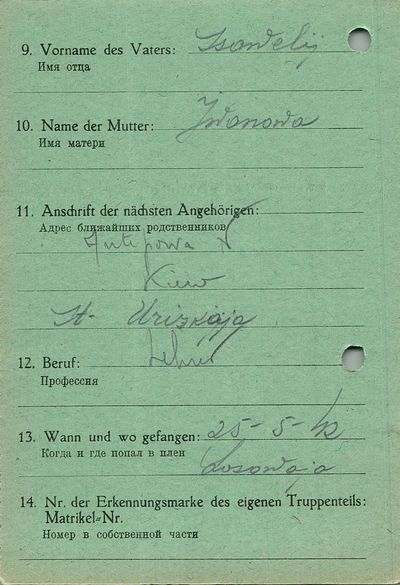 9. Vorname des Vaters: Isawelij
Имя отца
10. Name der Mutter: Iwanowa
Имя матери
11. Anschrift der nächsten Angehörigen:
Адрес ближайших родственников
Antipowa
Kiew
St- Urizkaja
12. Beruf: Lehrer
Профессия
13. Wann und wo gefangen: 25-5-42
Когда и где попал в плен
Losowaja
14. Nr. der Erkennungsmarke des eigenen Truppenteils:
Matrikel=Nr.
Номер в собственной части